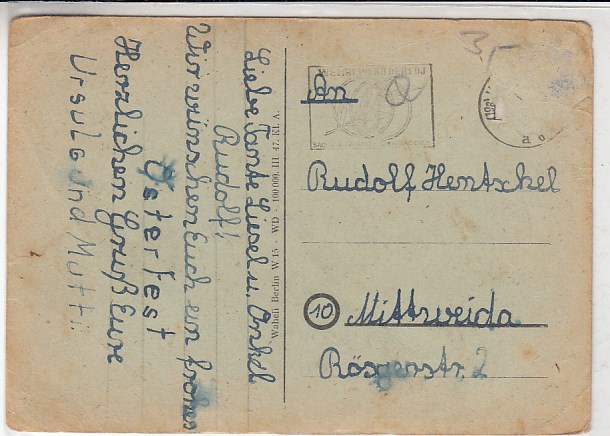 Liebe Tante Liesel u. Onkel
Rudolf!
Wir wünschen Euch ein frohes
Osterfest
Herzlichen Gruß Eure
Ursula und Mutti
Waheli Berlin W 15 - WD - 100 000. III. 47. Kl. A.
3,-
An
Rudolf Hentschel
10 Mittweida
Rössgerstr. 2